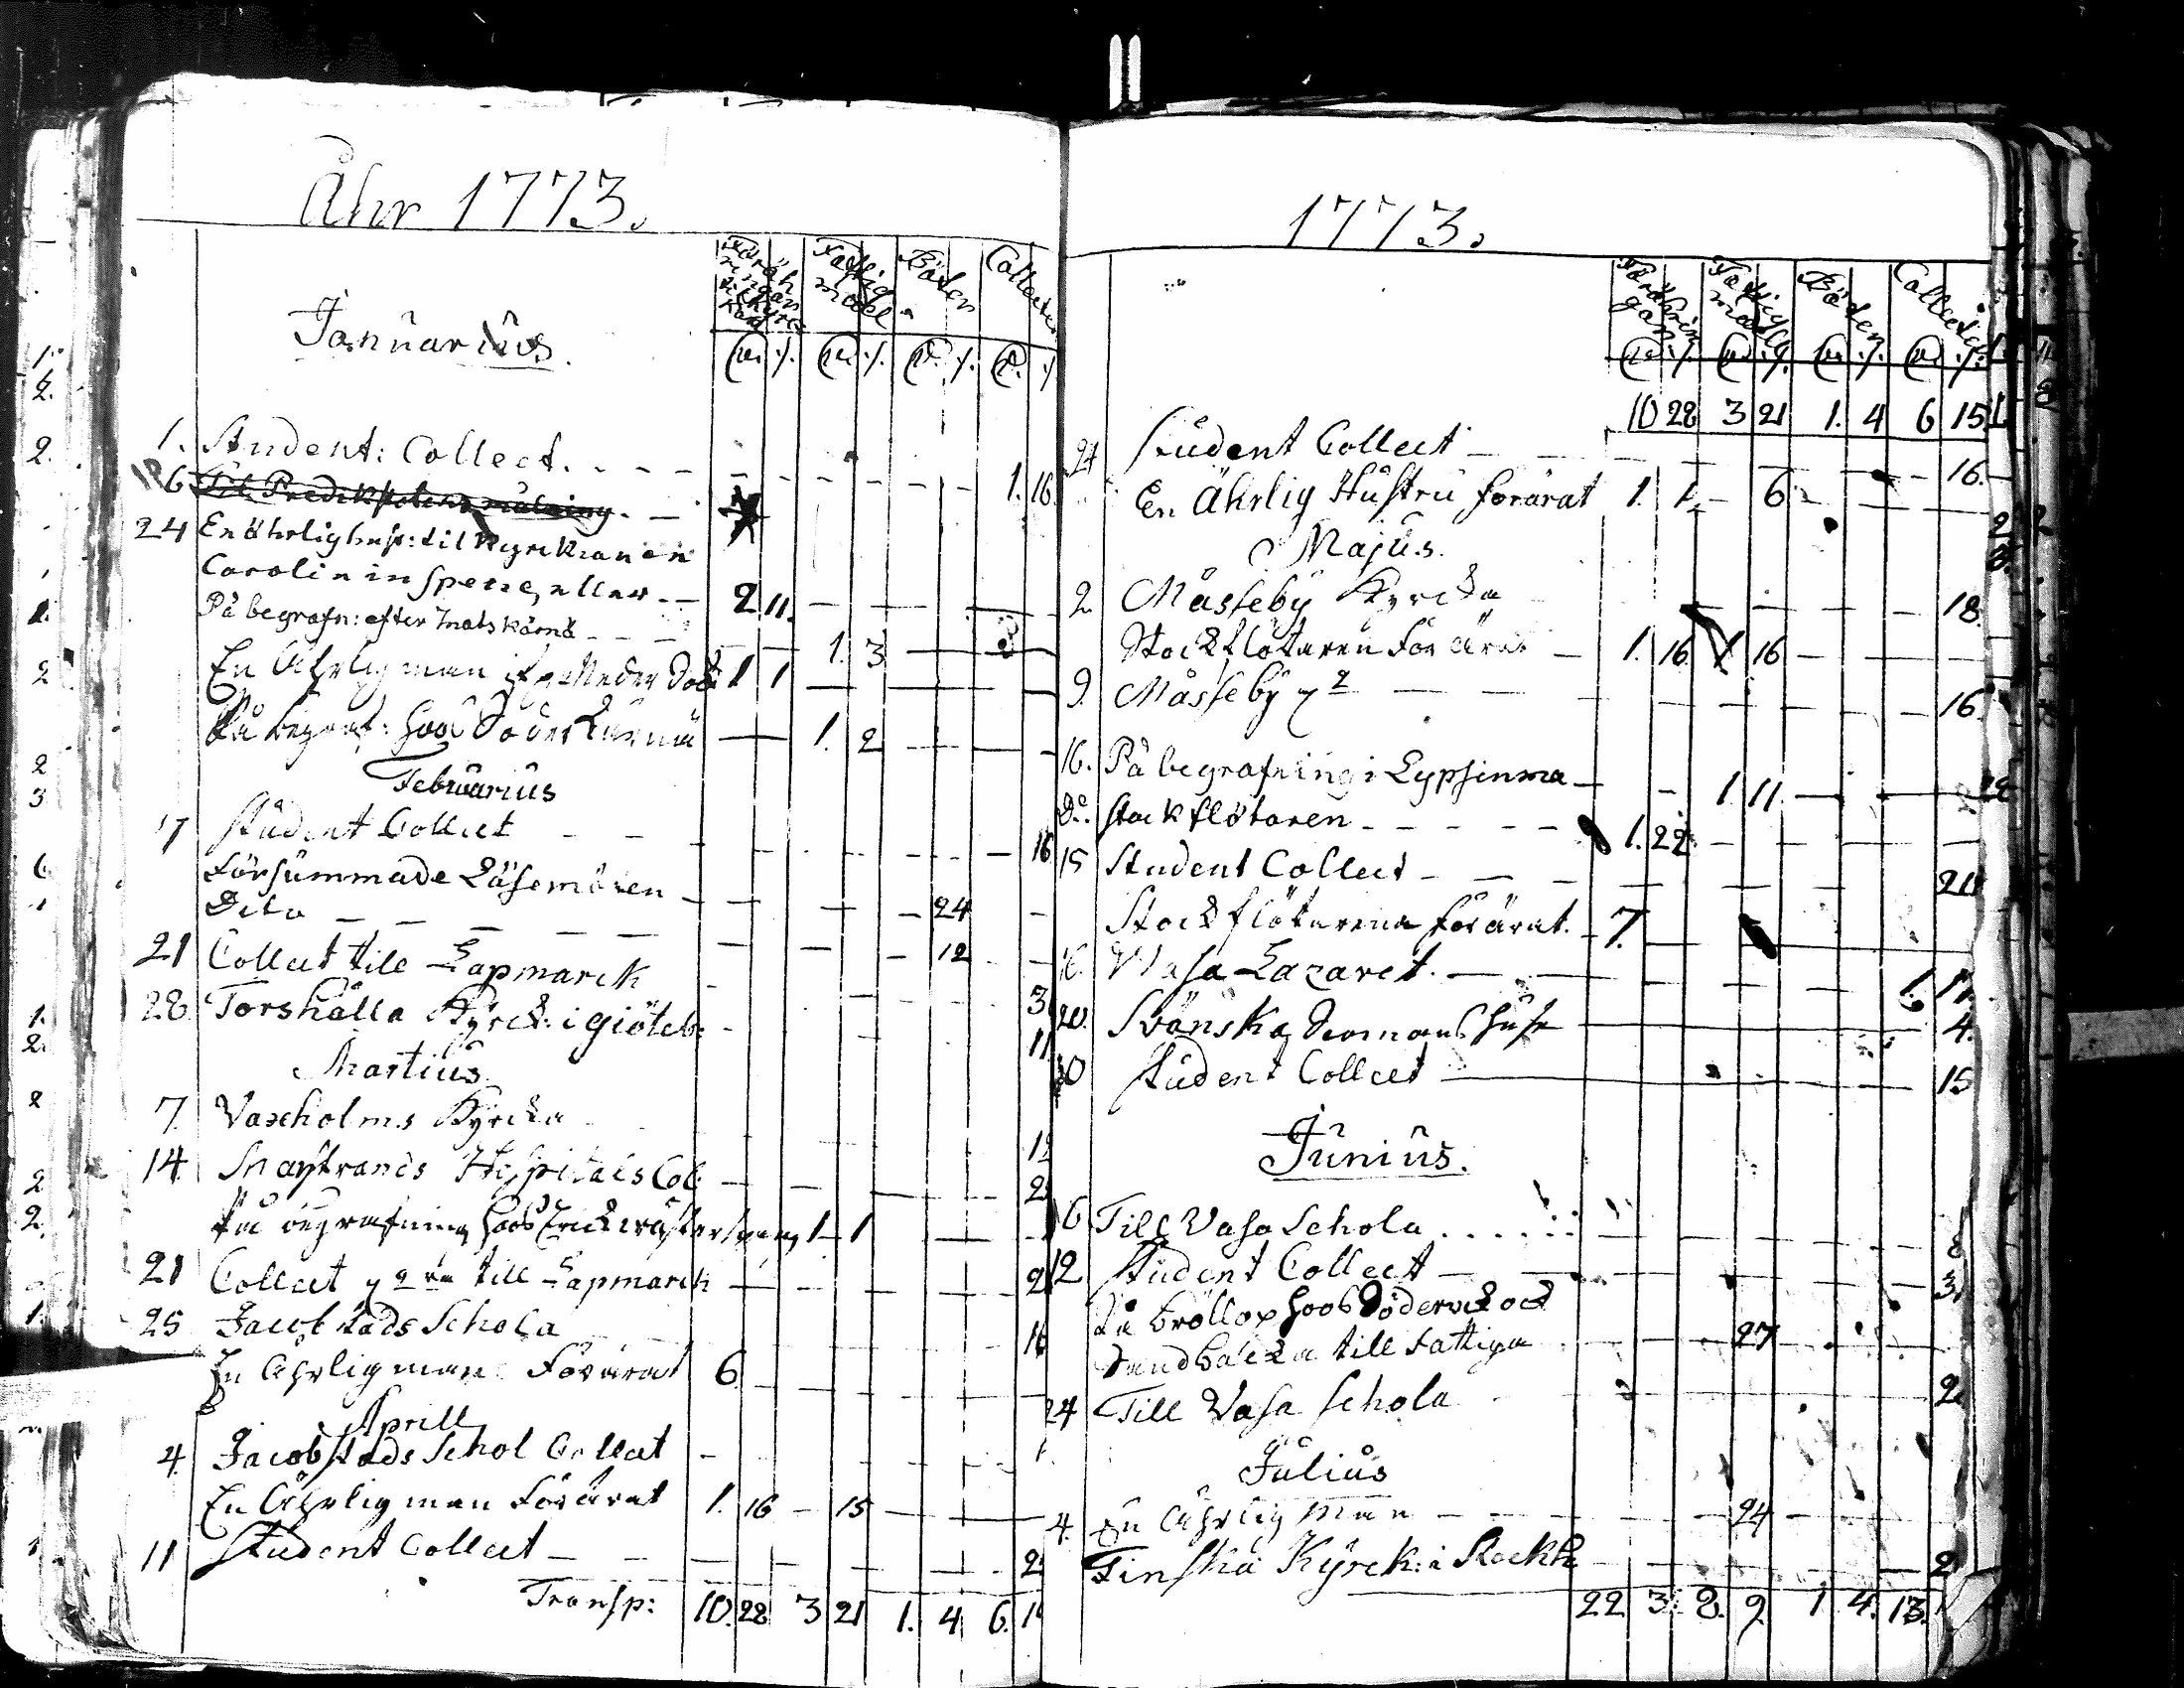 Åhr 1773.
Föräh ringar til kyrck Fattig medel Böter Collecter
Januarius.
1. Student: Collect. 1. 16.
6 Til Predikstolens målning.
24 En ährlig hust: til Kyrckian en
Carolin in specie, eller 2 11.
På begrafn: efter 1. 3
En Ährlig man 1 1
På begraf: hoos Söder 1. 2
Februarius
7 Student Collect 16
Försummade Läsemöten 24
Dito 12
21 Collect till Lapmarck 3
28 Torshälla Kyrck: i Giöteb: 11
Martius
7. Vaxholms Kyrcka 12
14. Marstrands Hospitals Col: 2
På begrafning hoos Erick 1 1
21 Collect till Lapmarck 2
25 Jacobstads Schola 16
En Ährlig man Förärat 6
Aprill
4. Jacobstads Schol Collect
En Ährlig man Förärat 1. 16 15
11 Student Collect 2
Transp: 10. 28 3 21 1. 4 6. 1
1773.
Förähringar Fattig medel Böter Collecter
10 28 3 21 1. 4 6 15
24 Student Collect 16.
En Ährlig Hustru förärat 1. 1 6
Majus.
2. Måsseby Kyrcka 18.
Stockflötaren Förärat 1. 16 1 16
9. Måsseby 16.
16. På begrafning i Lypsinma 1. 11.
Do. Stockflötaren 1. 22
15 Student Collect 21
Stockflötarena förärat. 7.
Wasa Lazaret. 1. 11.
20. Svänska 4.
30 Student Collect 15
Junius.
6 Till Vasa Schola 8
12 Student Collect 3
På bröllop hoos Söderback och
Sandbacka till Fattiga 27
24 Till Vasa Schola 2
Julius
4. En Ährlig Man 24
Finska Kyrck: i Stockh 2
22 3. 8. 9 1 4. 13.